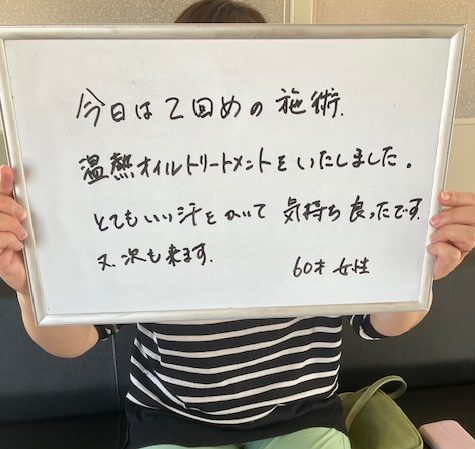 今日は2回めの施術.
温熱オイルトリートメントをいたしました。
とてもいい汗をかいて 気持ち良ったです.
又、次も来ます.
60才 女性